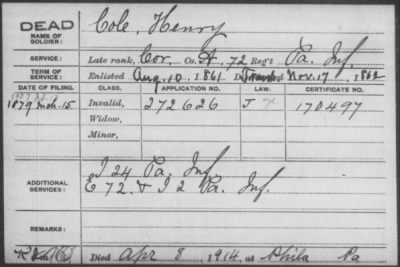 DEAD
NAME OF SOLDIER:
Cole, Henry
SERVICE:
Late rank, Cor. Co. A, 72 Reg't Pa. Inf.
TERM OF SERVICE:
Enlisted Aug. 10, 1861 Nov. 17, 1862
DATE OF FILING. CLASS. APPLICATION NO. LAW. CERTIFICATE NO.
1879 15 Invalid, 272626 J 170497
Widow,
Minor,
ADDITIONAL SERVICES:
I 24 Pa. Inf
E 72. & I 2 Pa. Inf.
REMARKS:
Died Apr 8, 1914, at Phila Pa